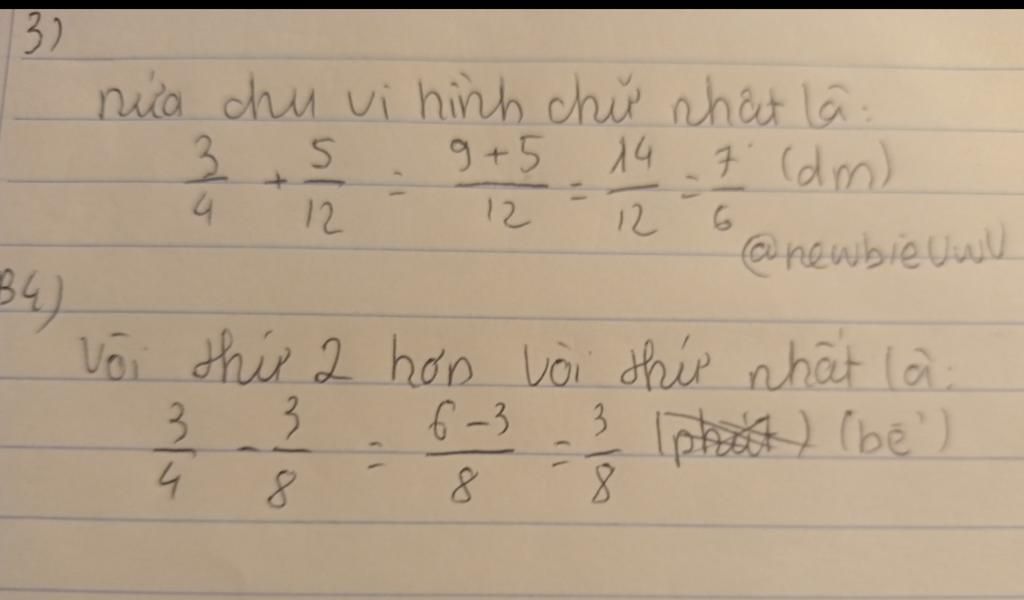 3)
nửa chu vi hình chữ nhật là:
3/4 + 5/12 = 9+5/12 = 14/12 = 7/6 (dm)
@newbieUwU
B4)
Vòi thứ 2 hơn vòi thứ nhất là:
3/4 - 3/8 = 6-3/8 = 3/8 (phút) (bể)